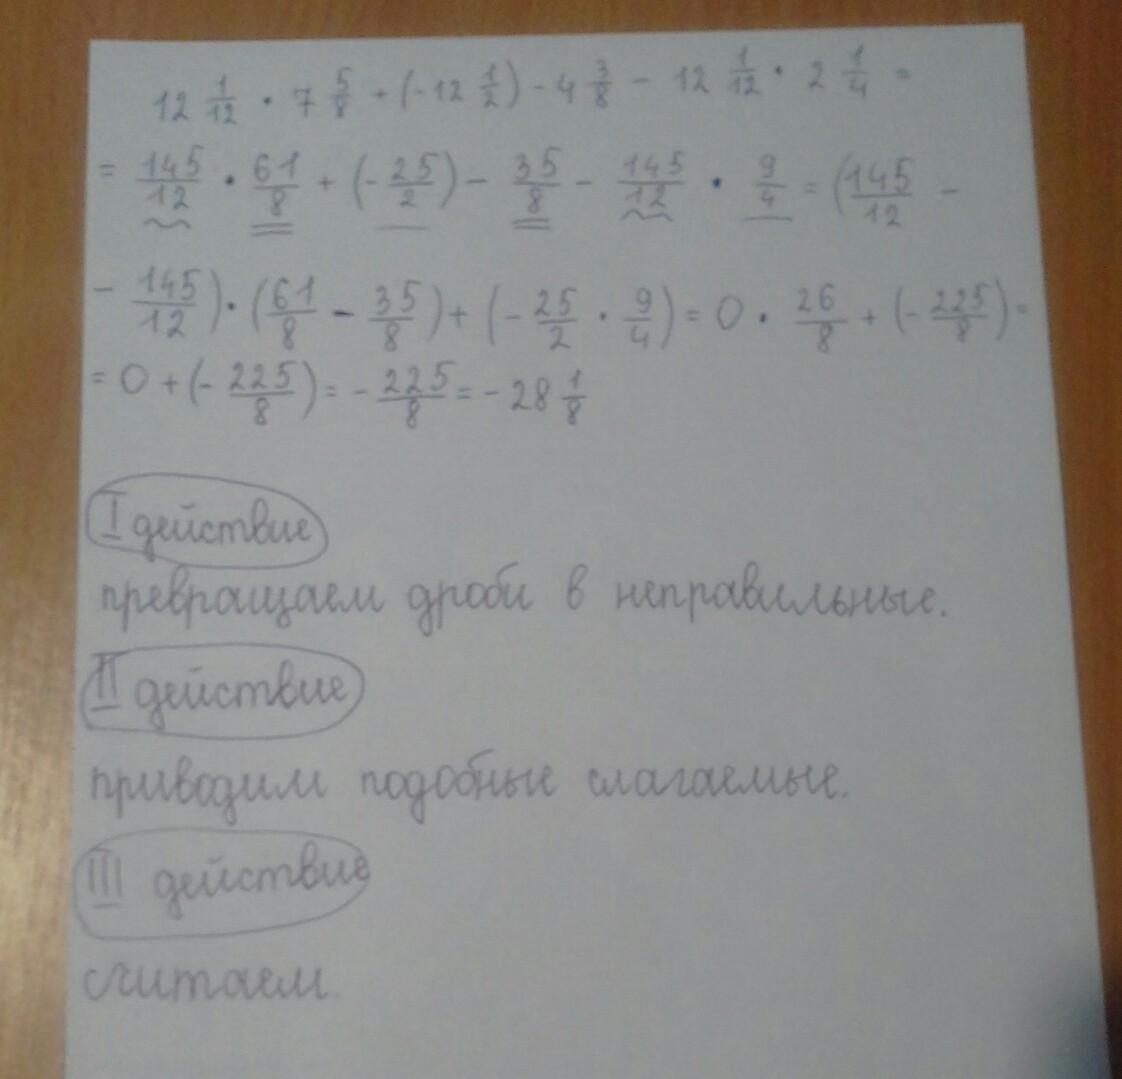 12 1/12 · 7 5/8 + (-12 1/2) - 4 3/8 - 12 1/12 · 2 1/4 =
= 145/12 · 61/8 + (- 25/2) - 35/8 - 145/12 · 9/4 = (145/12 -
- 145/12) · (61/8 - 35/8) + (- 25/2 · 9/4) = 0 · 26/8 + (- 225/8) =
= 0 + (- 225/8) = - 225/8 = - 28 1/8
I действие
превращаем дроби в неправильные.
II действие
приводим подобные слагаемые.
III действие
считаем.